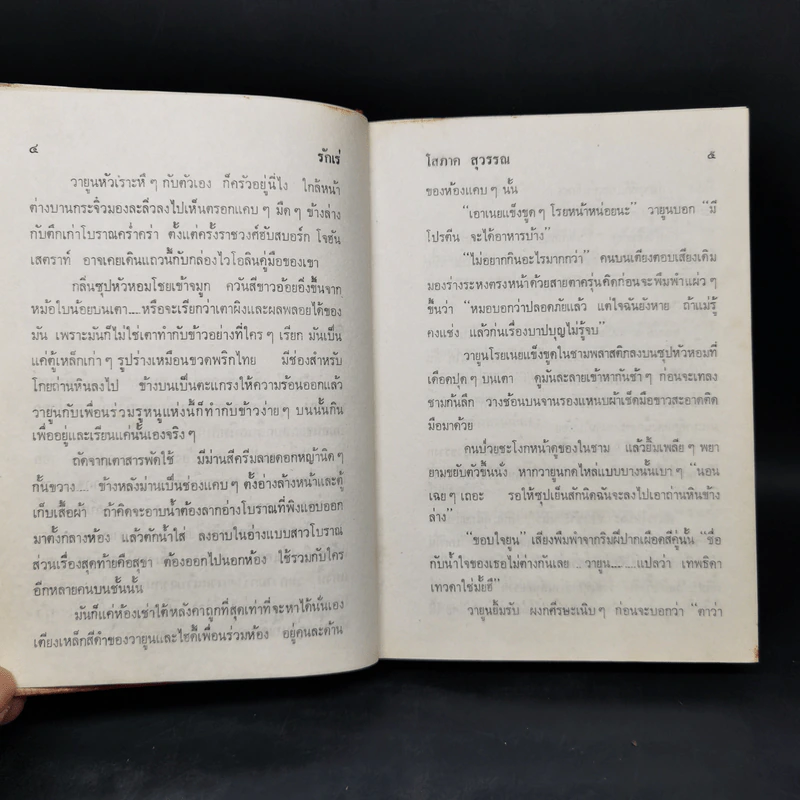 ๔
รักเร่
วายูนหัวเราะหึ ๆ กับตัวเอง ก็ครัวอยู่นี่ไง ใกล้หน้า
ต่างบานกระจิ๋วมองละลิ่วลงไปเห็นตรอกแคบ ๆ มืด ๆ ข้างล่าง
กับตึกเก่าโบราณคร่ำคร่า ตั้งแต่ครั้งราชวงศ์ฮับสบอร์ก โจฮัน
เสตราท์ อาจเคยเดินแถวนี้กับกล่องไวโอลินคู่มือของเขา
กลิ่นซุปหัวหอมโชยเข้าจมูก ควันสีขาวอ้อยอิ่งขึ้นจาก
หม้อใบน้อยบนเตา.....หรือจะเรียกว่าเตาผิงและผลพลอยได้ของ
มัน เพราะมันก็ไม่ใช่เตาทำกับข้าวอย่างที่ใคร ๆ เรียก มันเป็น
แค่ตู้เหล็กเก่า ๆ รูปร่างเหมือนขวดพริกไทย มีช่องสำหรับ
โกยถ่านหินลงไป ข้างบนเป็นตะแกรงให้ความร้อนออกแล้ว
วายูนกับเพื่อนร่วมรูหนูแห่งนี้ก็ทำกับข้าวง่าย ๆ บนนั้นกิน
เพื่ออยู่และเรียนแค่นั้นเองจริง ๆ
ถัดจากเตาสารพัดใช้ มีม่านสีครีมลายดอกหญ้านิด ๆ
กั้นขวาง..... ข้างหลังม่านเป็นช่องแคบ ๆ ตั้งอ่างล้างหน้าและตู้
เก็บเสื้อผ้า ถ้าคิดจะอาบน้ำต้องลากอ่างโบราณที่พิงแอบออก
มาตั้งกลางห้อง แล้วตักน้ำใส่ ลงอาบในอ่างแบบสาวโบราณ
ส่วนเรื่องสุดท้ายคือสุขา ต้องออกไปนอกห้อง ใช้รวมกับใคร
อีกหลายคนบนชั้นนั้น
มันก็แค่ห้องเช่าใต้หลังคาถูกที่สุดเท่าที่จะหาได้นั่นเอง
เตียงเหล็กสีดำของวายูนและไฮดี้เพื่อนร่วมห้อง อยู่คนละด้าน
โสภาค สุวรรณ
๕
ของห้องแคบ ๆ นั้น
"เอาเนยแข็งขูด ๆ โรยหน้าหน่อยนะ" วายูนบอก "มี
โปรตีน จะได้อาหารบ้าง"
"ไม่อยากกินอะไรมากกว่า" คนบนเตียงตอบเสียงเดิม
มองร่างระหงตรงหน้าด้วยสายตาครุ่นคิดก่อนจะพึมพำแผ่ว ๆ
ขึ้นว่า "หมอบอกว่าปลอดภัยแล้ว แต่ใจฉันยังหาย ถ้าแม่รู้
คงแช่ง แล้วก่นเรื่องบาปบุญไม่รู้จบ"
วายูนโรยเนยแข็งขูดในชามพลาสติกลงบนซุปหัวหอมที่
เดือดปุด ๆ บนเตา ดูมันละลายเข้าหากันช้า ๆ ก่อนจะเทลง
ชามก้นลึก วางช้อนบนจานรองแหนบผ้าเช็ดมือขาวสะอาดติด
มือมาด้วย
คนป่วยชะโงกหน้าดูของในชาม แล้วยิ้มเพลีย ๆ พยา
ยามขยับตัวขึ้นนั่ง หากวายูนกดไหล่แบบบางนั้นเบา ๆ "นอน
เฉย ๆ เถอะ รอให้ซุปเย็นสักนิดฉันจะลงไปเอาถ่านหินข้าง
ล่าง"
"ขอบใจยูน" เสียงพึมพำจากริมฝีปากเผือดสีคู่นั้น "ชื่อ
กับน้ำใจของเธอไม่ต่างกันเลย ....วายูน.........แปลว่า เทพธิดา
เทวดาใช่มั้ยฮึ"
วายูนยิ้มรับ ผงกศีรษะเนิบ ๆ ก่อนจะบอกว่า "ตาว่า